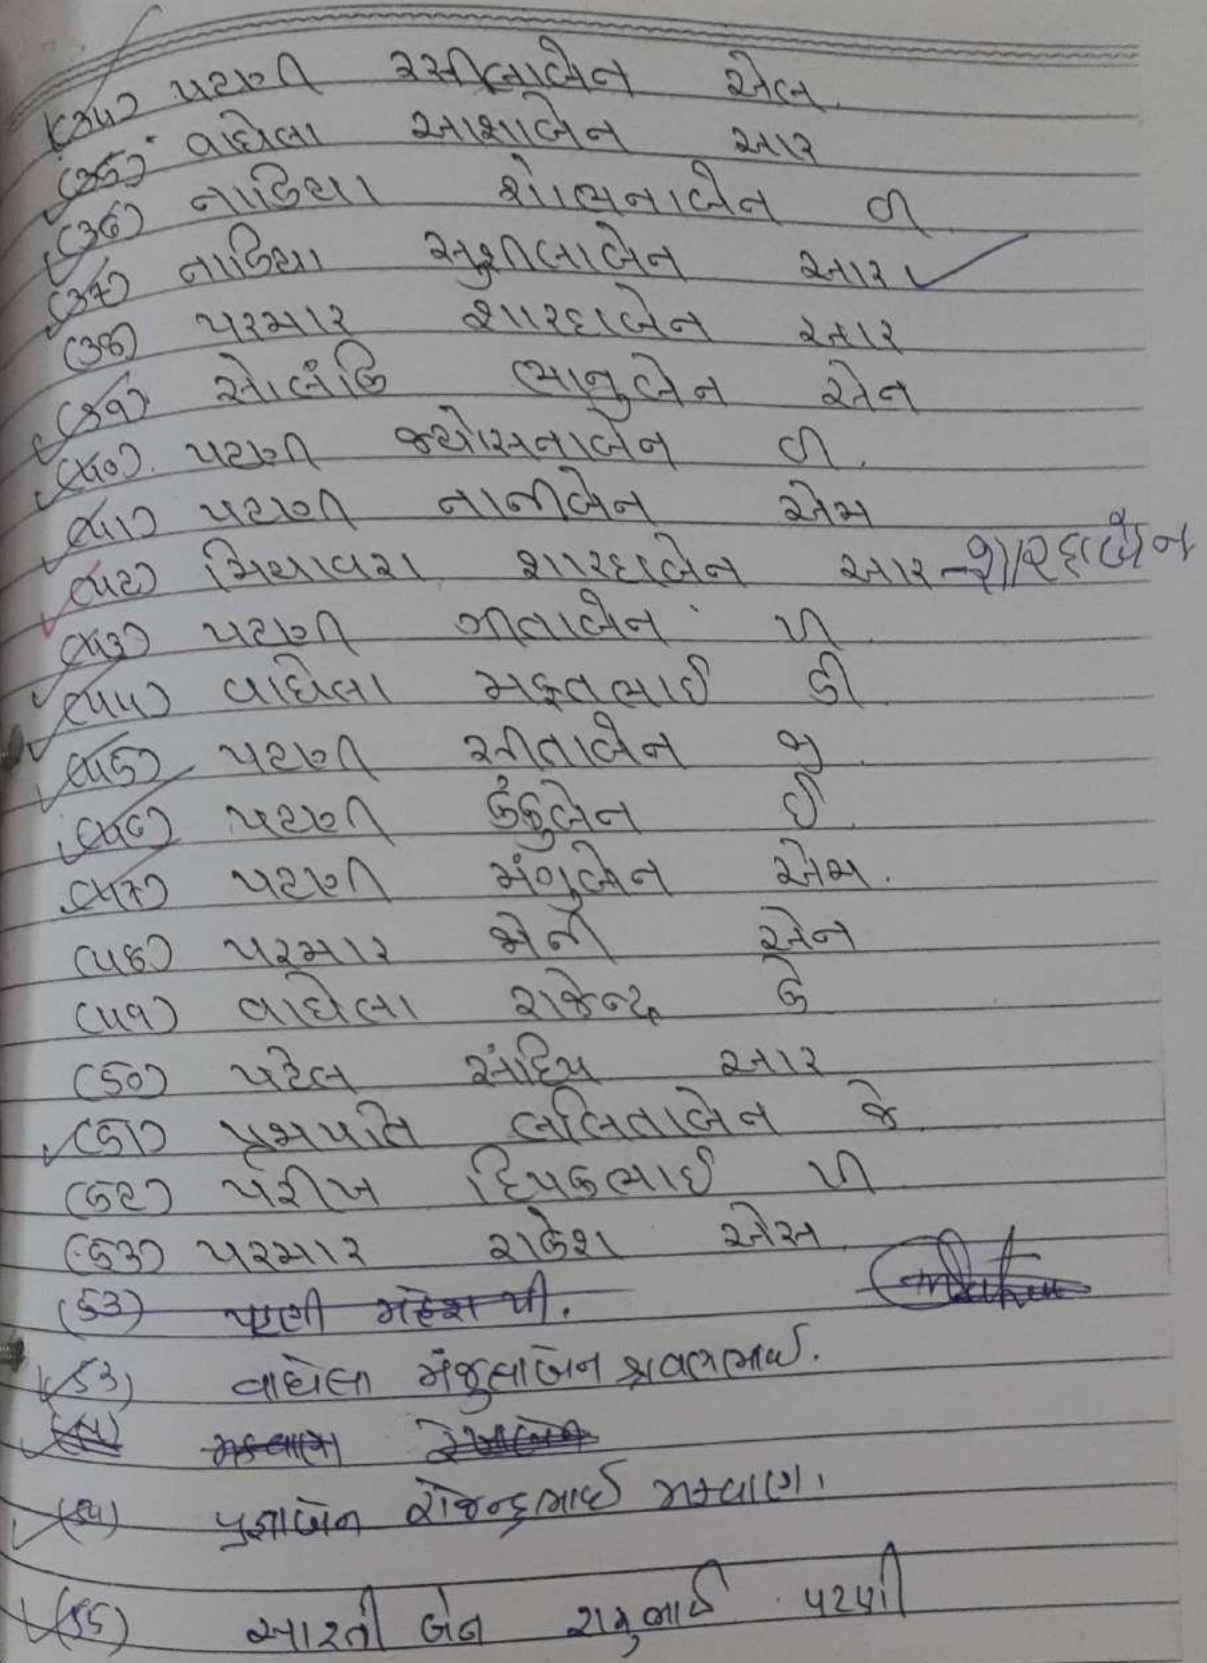 (૩૫) પટણી રસીલાબેન એલ.
(૩૬) વાઘેલા આશાબેન આર
(૩૬) નાડિયા શોભનાબેન વી
(૩૭) નાડિયા સુશીલાબેન આર
(૩૮) પરમાર શારદાબેન આર
(૩૯) સોલંકિ ભાનુબેન એન
(૫૦) પટણી જ્યોત્સનાબેન વી.
(૫૧) પટણી નાનીબેન એમ
(૫૨) મિયાવરા શારદાબેન આર - શારદાબેન
(૫૩) પટણી ગીતાબેન પી
(૫૫) વાઘેલા મફતભાઈ ડી
(૫૬) પટણી સીતાબેન જી
(૫૬) પટણી કંકુબેન ઈ
(૫૭) પટણી મંગુબેન એમ.
(૫૮) પરમાર મેની એન
(૫૯) વાઘેલા રાજેન્દ્ર કે
(૬૦) પટેલ સંદિપ આર
(૬૧) પ્રજાપતિ લલિતાબેન જે
(૬૨) પરીખ દિપકભાઈ પી
(૬૩) પરમાર રાકેશ એસ
(૬૩) પટણી મહેશ પી.
(૬૩) વાઘેલા મંજુલાબેન શ્રવણભાઈ.
મકવાણા રેખાબેન
પ્રજ્ઞાબેન રાજેન્દ્રભાઈ મકવાણા.
(૬૬) આરતી બેન રાજુભાઈ પટણી